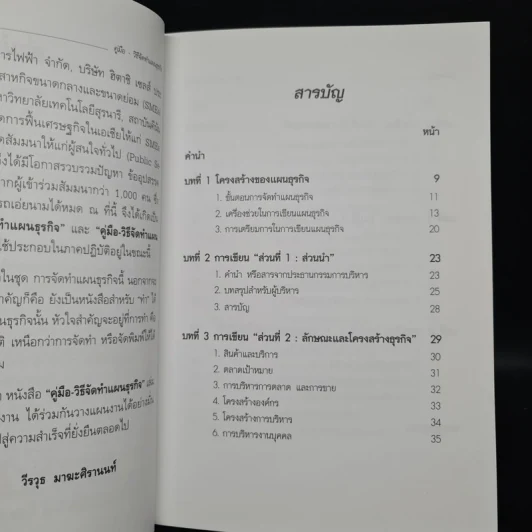 คู่มือ - วิธีจัดทำแผนธุรกิจ
ารไฟฟ้า จำกัด, บริษัท ฮิตาชิ เซลส์
สาหกิจขนาดกลางและขนาดย่อม (SMEs)
าวิทยาลัยเทคโนโลยีสุรนารี, สถาบัน
ดการฟื้นเศรษฐกิจในเอเชียให้แก่ SMEs
ดสัมมนาให้แก่ผู้สนใจทั่วไป (Public
งได้มีโอกาสรวบรวมปัญหา ข้ออุปสรรค
ากผู้เข้าร่วมสัมมนากว่า 1,000 คน
รถเอ่ยนามได้หมด ณ ที่นี้ จึงได้เกิดเป็น
ทำแผนธุรกิจ" และ "คู่มือ-วิธีจัดทำแผน
ใช้ประกอบในภาคปฏิบัติอยู่ในขณะนี้
ในชุด การจัดทำแผนธุรกิจนี้ นอกจากจะ
าคัญก็คือ ยังเป็นหนังสือสำหรับ "ทำ" ได้
นธุรกิจนั้น หัวใจสำคัญจะอยู่ที่การทำ คือ
ติ เหนือกว่าการจัดทำ หรือจัดพิมพ์ให้ได้
หนังสือ "คู่มือ-วิธีจัดทำแผนธุรกิจ"
งาน ได้ร่วมกันวางแผนงานได้อย่างมั่น
ปสู่ความสำเร็จที่ยั่งยืนตลอดไป
วีรวุธ มาฆะศิรานนท์
สารบัญ
หน้า
คำนำ
บทที่ 1 โครงสร้างของแผนธุรกิจ 9
1. ขั้นตอนการจัดทำแผนธุรกิจ 11
2. เครื่องช่วยในการเขียนแผนธุรกิจ 13
3. การเตรียมการในการเขียนแผนธุรกิจ 20
บทที่ 2 การเขียน "ส่วนที่ 1 : ส่วนนำ" 23
1. คำนำ หรือสารจากประธานกรรมการบริหาร 23
2. บทสรุปสำหรับผู้บริหาร 25
3. สารบัญ 28
บทที่ 3 การเขียน "ส่วนที่ 2 : ลักษณะและโครงสร้างธุรกิจ" 29
1. สินค้าและบริการ 30
2. ตลาดเป้าหมาย 31
3. การบริหารการตลาด และการขาย 32
4. โครงสร้างองค์กร 33
5. โครงสร้างการบริหาร 34
6. การบริหารงานบุคคล 35